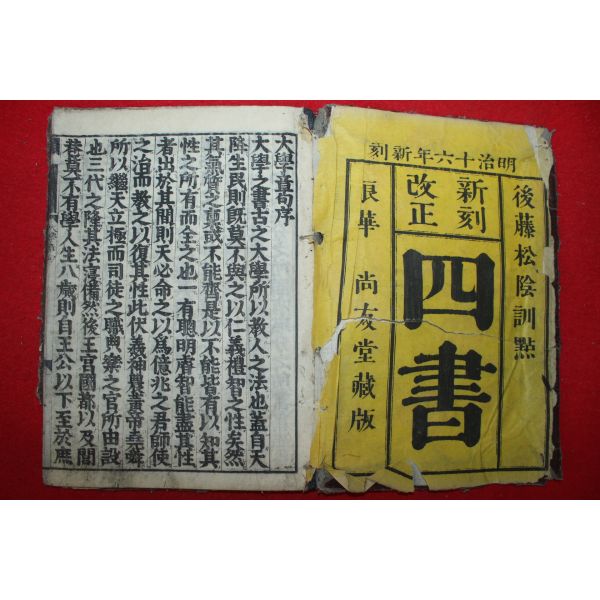 明治十六年新刻
後藤松陰訓點
新刻
改正
四書
浪華 尚友堂藏版
大學章句序
大學之書古之大學所以教人之法也蓋自天
降生民則既莫不與之以仁義禮智之性矣然
其氣質之稟或不能齊是以不能皆有以知其
性之所有而全之也一有聰明睿智能盡其性
者出於其間則天必命之以爲億兆之君師使
之治而教之以復其性此伏羲神農黃帝堯舜
所以繼天立極而司徒之職典樂之官所由設
也三代之隆其法寖備然後王宮國都以及閭
巷莫不有學人生八歲則自王公以下至於庶